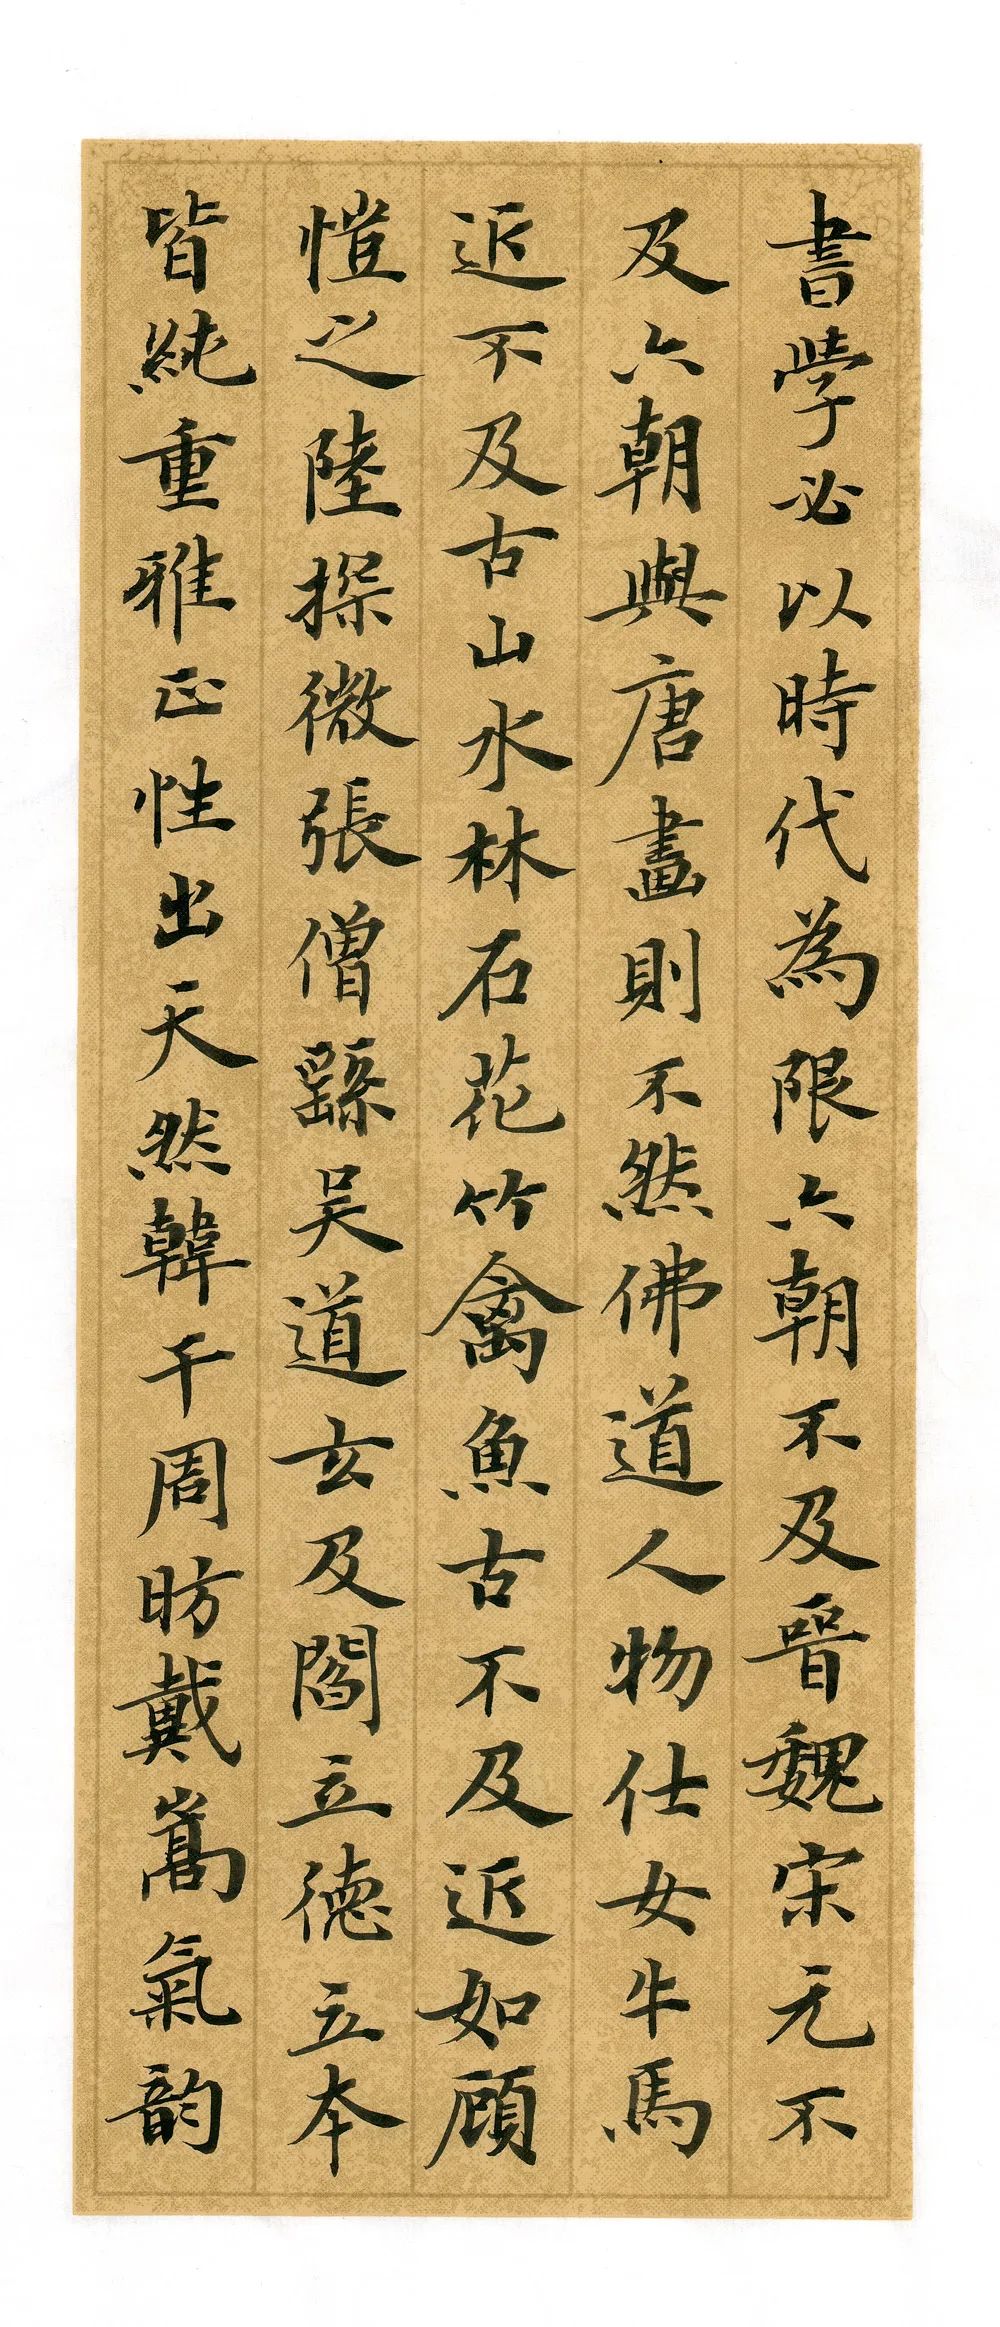 書學必以時代為限六朝不及晉魏宋元不
及六朝與唐畫則不然佛道人物仕女牛馬
近不及古山水林石花竹禽魚古不及近如顧
愷之陸探微張僧繇吳道玄及閻立德立本
皆純重雅正性出天然韓干周昉戴嵩氣韵